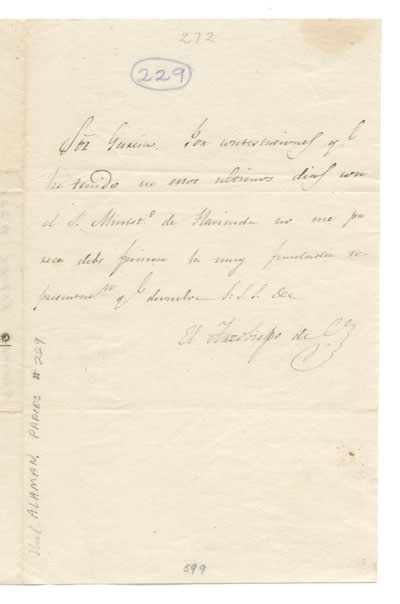 272
229
Sōr Garcia. Por contestaciones q.e
he tenido en estos ultimos dias con
el S. Minist.o de Hacienda no me pa
rece debo firmar la muy fundada re-
presentac.n q.e devuelve S.S.S. Q.e
El Arzobispo de C.
Univ. ALAMAN PAPERS # 229
699